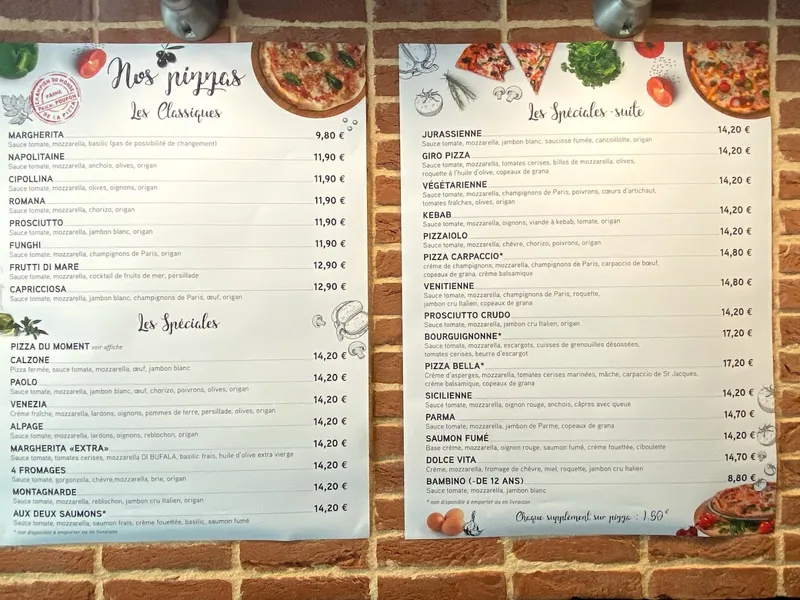 Nos pizzas
CHAMPION DU MONDE
PARME
DE LA PIZZA
Les Classiques
MARGHERITA 9,80 €
Sauce tomate, mozzarella, basilic (pas de possibilité de changement)
NAPOLITAINE 11,90 €
Sauce tomate, mozzarella, anchois, olives, origan
CIPOLLINA 11,90 €
Sauce tomate, mozzarella, olives, oignons, origan
ROMANA 11,90 €
Sauce tomate, mozzarella, chorizo, origan
PROSCIUTTO 11,90 €
Sauce tomate, mozzarella, jambon blanc, origan
FUNGHI 11,90 €
Sauce tomate, mozzarella, champignons de Paris, origan
FRUTTI DI MARE 12,90 €
Sauce tomate, mozzarella, cocktail de fruits de mer, persillade
CAPRICCIOSA 12,90 €
Sauce tomate, mozzarella, jambon blanc, champignons de Paris, œuf, origan
Les Spéciales
PIZZA DU MOMENT voir affiche
CALZONE 14,20 €
Pizza fermée, sauce tomate, mozzarella, œuf, jambon blanc
PAOLO 14,20 €
Sauce tomate, mozzarella, jambon blanc, œuf, chorizo, poivrons, olives, origan
VENEZIA 14,20 €
Crème fraîche, mozzarella, lardons, oignons, pommes de terre, persillade, olives, origan
ALPAGE 14,20 €
Sauce tomate, mozzarella, lardons, oignons, reblochon, origan
MARGHERITA «EXTRA» 14,20 €
Sauce tomate, tomates cerises, mozzarella DI BUFALA, basilic frais, huile d'olive extra vierge
4 FROMAGES 14,20 €
Sauce tomate, gorgonzola, chèvre,mozzarella, brie, origan
MONTAGNARDE 14,20 €
Sauce tomate, mozzarella, reblochon, jambon cru Italien, origan
AUX DEUX SAUMONS* 14,20 €
Sauce tomate, mozzarella, saumon frais, crème fouettée, basilic, saumon fumé
* non disponible à emporter ou en livraison
Les Spéciales -suite
JURASSIENNE 14,20 €
Sauce tomate, mozzarella, jambon blanc, saucisse fumée, cancoillotte, origan
GIRO PIZZA 14,20 €
Sauce tomate, mozzarella, tomates cerises, billes de mozzarella, olives,
roquette à l'huile d'olive, copeaux de grana
VÉGÉTARIENNE 14,20 €
Sauce tomate, mozzarella, champignons de Paris, poivrons, cœurs d'artichaut,
tomates fraîches, olives, origan
KEBAB 14,20 €
Sauce tomate, mozzarella, oignons, viande à kebab, tomate, origan
PIZZAIOLO 14,20 €
Sauce tomate, mozzarella, chèvre, chorizo, poivrons, origan
PIZZA CARPACCIO* 14,80 €
crème de champignons, mozzarella, champignons de Paris, carpaccio de bœuf,
copeaux de grana, crème balsamique
VENITIENNE 14,80 €
Sauce tomate, mozzarella, champignons de Paris, roquette,
jambon cru Italien, copeaux de grana
PROSCIUTTO CRUDO 14,20 €
Sauce tomate, mozzarella, jambon cru Italien, origan
BOURGUIGNONNE* 17,20 €
Sauce tomate, mozzarella, escargots, cuisses de grenouilles désossées,
tomates cerises, beurre d'escargot
PIZZA BELLA* 17,20 €
Crème d'asperges, mozzarella, tomates cerises marinées, mâche, carpaccio de St Jacques,
crème balsamique, copeaux de grana
SICILIENNE 14,20 €
Sauce tomate, mozzarella, oignon rouge, anchois, câpres avec queue
PARMA 14,70 €
Sauce tomate, mozzarella, jambon de Parme, copeaux de grana
SAUMON FUMÉ 14,20 €
Base crème, mozzarella, oignon rouge, saumon fumé, crème fouettée, ciboulette
DOLCE VITA 14,70 €
Crème, mozzarella, fromage de chèvre, miel, roquette, jambon cru Italien
BAMBINO (-DE 12 ANS) 8,80 €
Sauce tomate, mozzarella, jambon blanc
* non disponible à emporter ou en livraison
Chaque supplément sur pizza : 1.50€